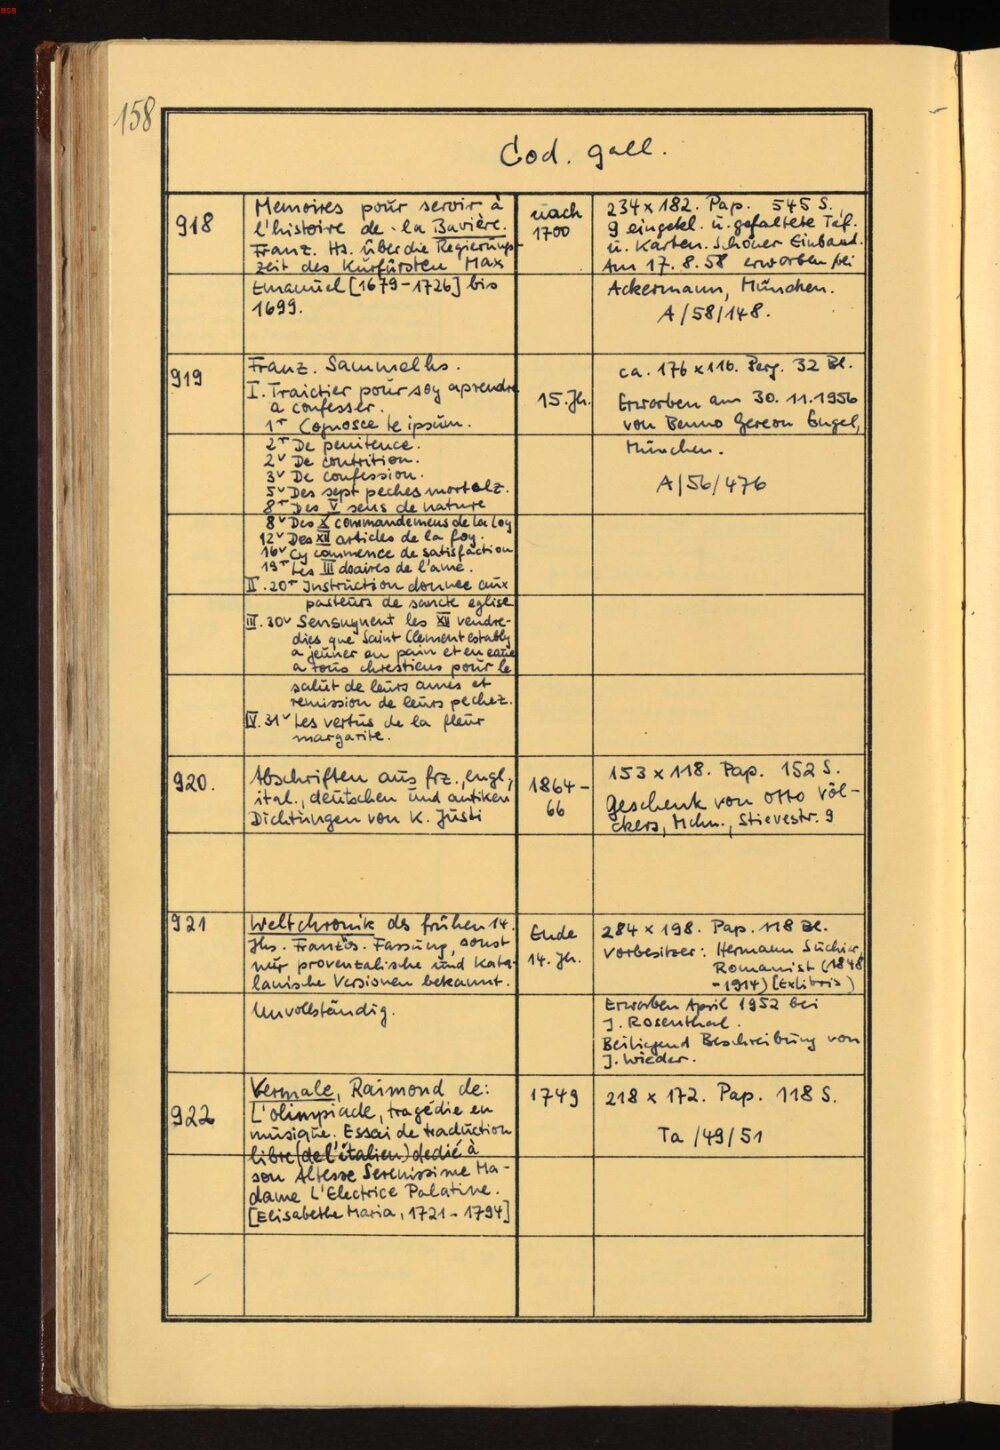 BSB
158
Cod. gall.
918
Memoires pour servir à
l'histoire de la Bavière.
Franz. Hs. über die Regierungs-
zeit des Kurfürsten Max
Emanuel [1679-1726] bis
1699.
nach
1700
234 x 182. Pap. 545 S.
9 eingekl. u. gefaltete Taf.
u. Karten. Schöner Einband.
Am 17. 8. 58 erworben bei
Ackermann, München.
A/58/148.
919
Franz. Sammelhs.
I. Traictier pour soy aprendre
a confesser.
1r Cognosce te ipsum.
2r De penitence.
2v De contrition.
3v De confession.
5v Des sept peches mortelz.
8r Des V sens de nature
8v Des X commandemens de la loy
12v Des XII articles de la foy.
16v Cy commence de satisfaction
19r Les III doaires de l'ame.
II. 20r Instruction donnee aux
pasteurs de saincte eglise
III. 30v Sensuyuent les XII vendre-
dies que Saint Clement estably
a jeuner en pain et en eaue
a tous chrestiens pour le
salut de leurs ames et
remission de leurs pechez.
IV. 31v Les vertus de la fleur
margarite.
15. Jh.
ca. 176 x 116. Perg. 32 Bl.
Erworben am 30. 11. 1956
von Benno Gereon Engel,
München.
A/56/476
920.
Abschriften aus frz., engl.,
ital., deutschen und antiken
Dichtungen von K. Justi
1864-
66
153 x 118. Pap. 152 S.
Geschenk von Otto Völ-
ckers, Mchn., Stievestr. 9
921
Weltchronik des frühen 14.
Jhs. Französ. Fassung, sonst
nur provenzalische und kata-
lanische Versionen bekannt.
Unvollständig.
Ende
14. Jh.
284 x 198. Pap. 118 Bl.
Vorbesitzer: Hermann Suchier,
Romanist (1848
-1914) (Exlibris)
Erworben April 1952 bei
J. Rosenthal.
Beiliegend Beschreibung von
J. Wieder.
922
Vermale, Raimond de:
L'olimpiade, tragédie en
musique. Essai de traduction
libre (de l'italien) dedié à
son Altesse Serenissime Ma-
dame L'Electrice Palatine.
[Elisabethe Maria, 1721-1794]
1749
218 x 172. Pap. 118 S.
Ta /49/51